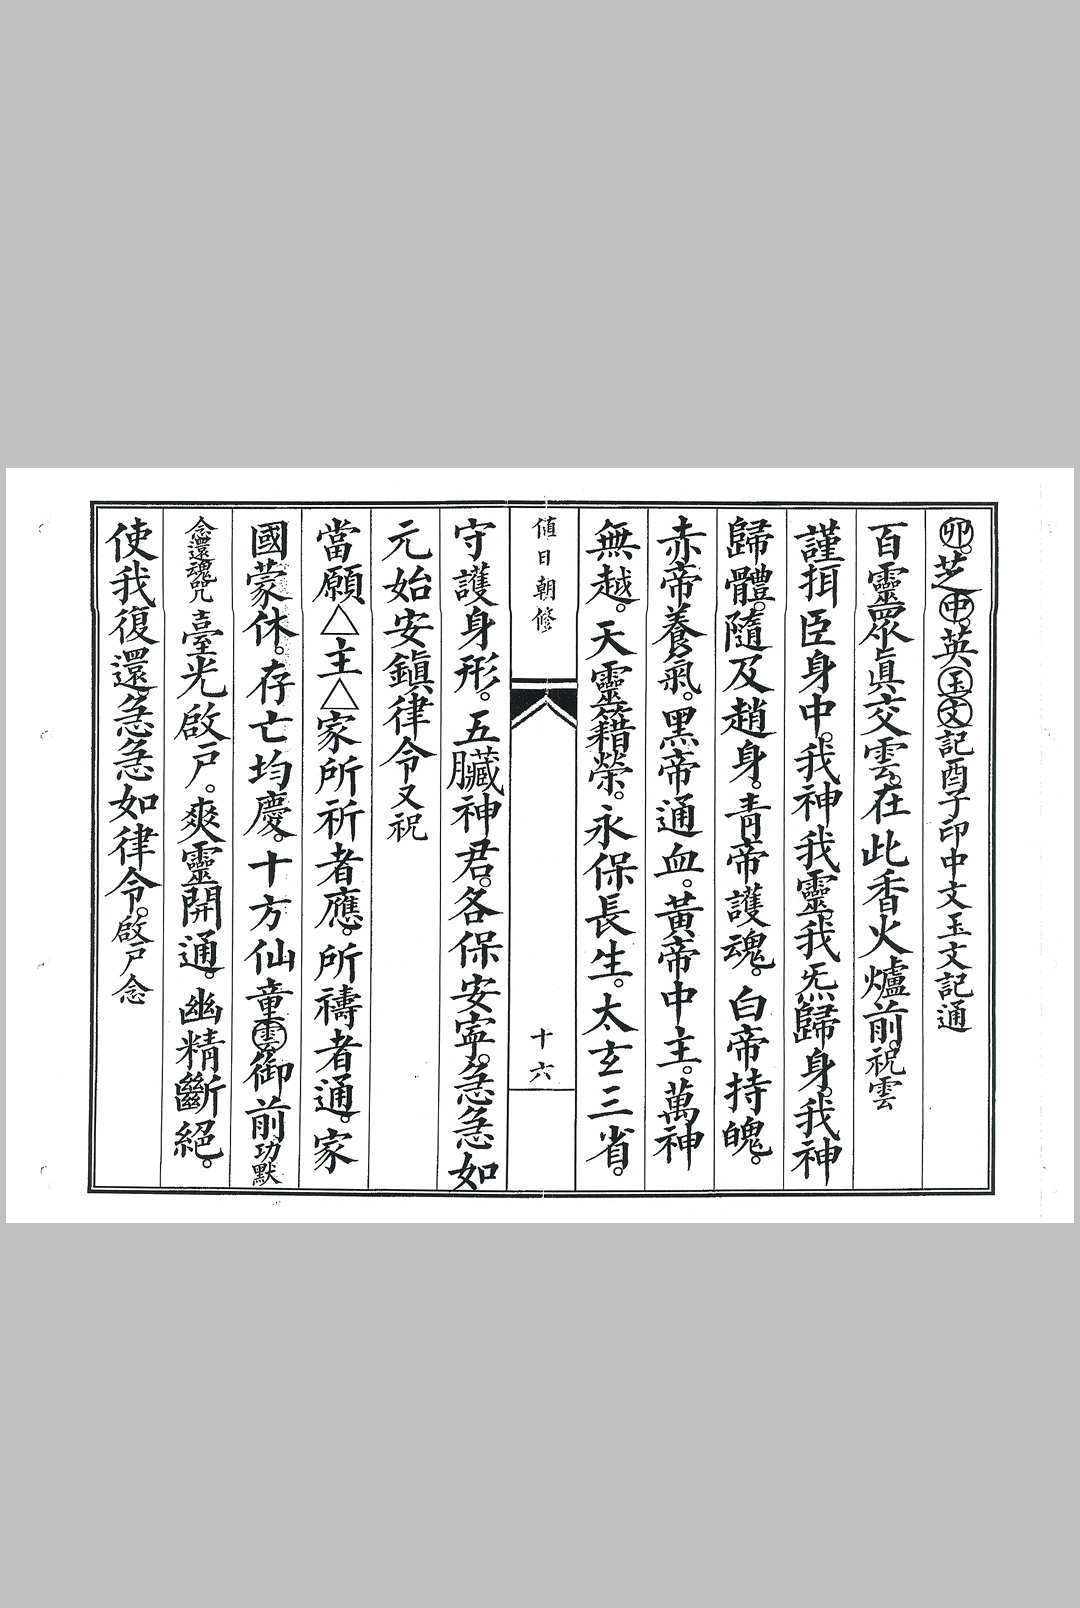 卯。芝中。英玉文記酉子印中文玉文記通
百靈眾真交雲。在此香火爐前。祝雲
謹揖臣身中。我神我靈。我炁歸身。我神
歸體。隨及趙身。青帝護魂。白帝持魄。
赤帝養氣。黑帝通血。黃帝中主。萬神
無越。天靈籍榮。永保長生。太玄三省。
值日朝修
十六
守護身形。五臟神君。各保安寧。急急如
元始安鎮律令又祝
當願△主△家所祈者應。所禱者通。家
國蒙休。存亡均慶。十方仙童雲御前功默
念還魂咒臺光啟戶。爽靈開通。幽精斷絕。
使我復還。急急如律令。啟戶念